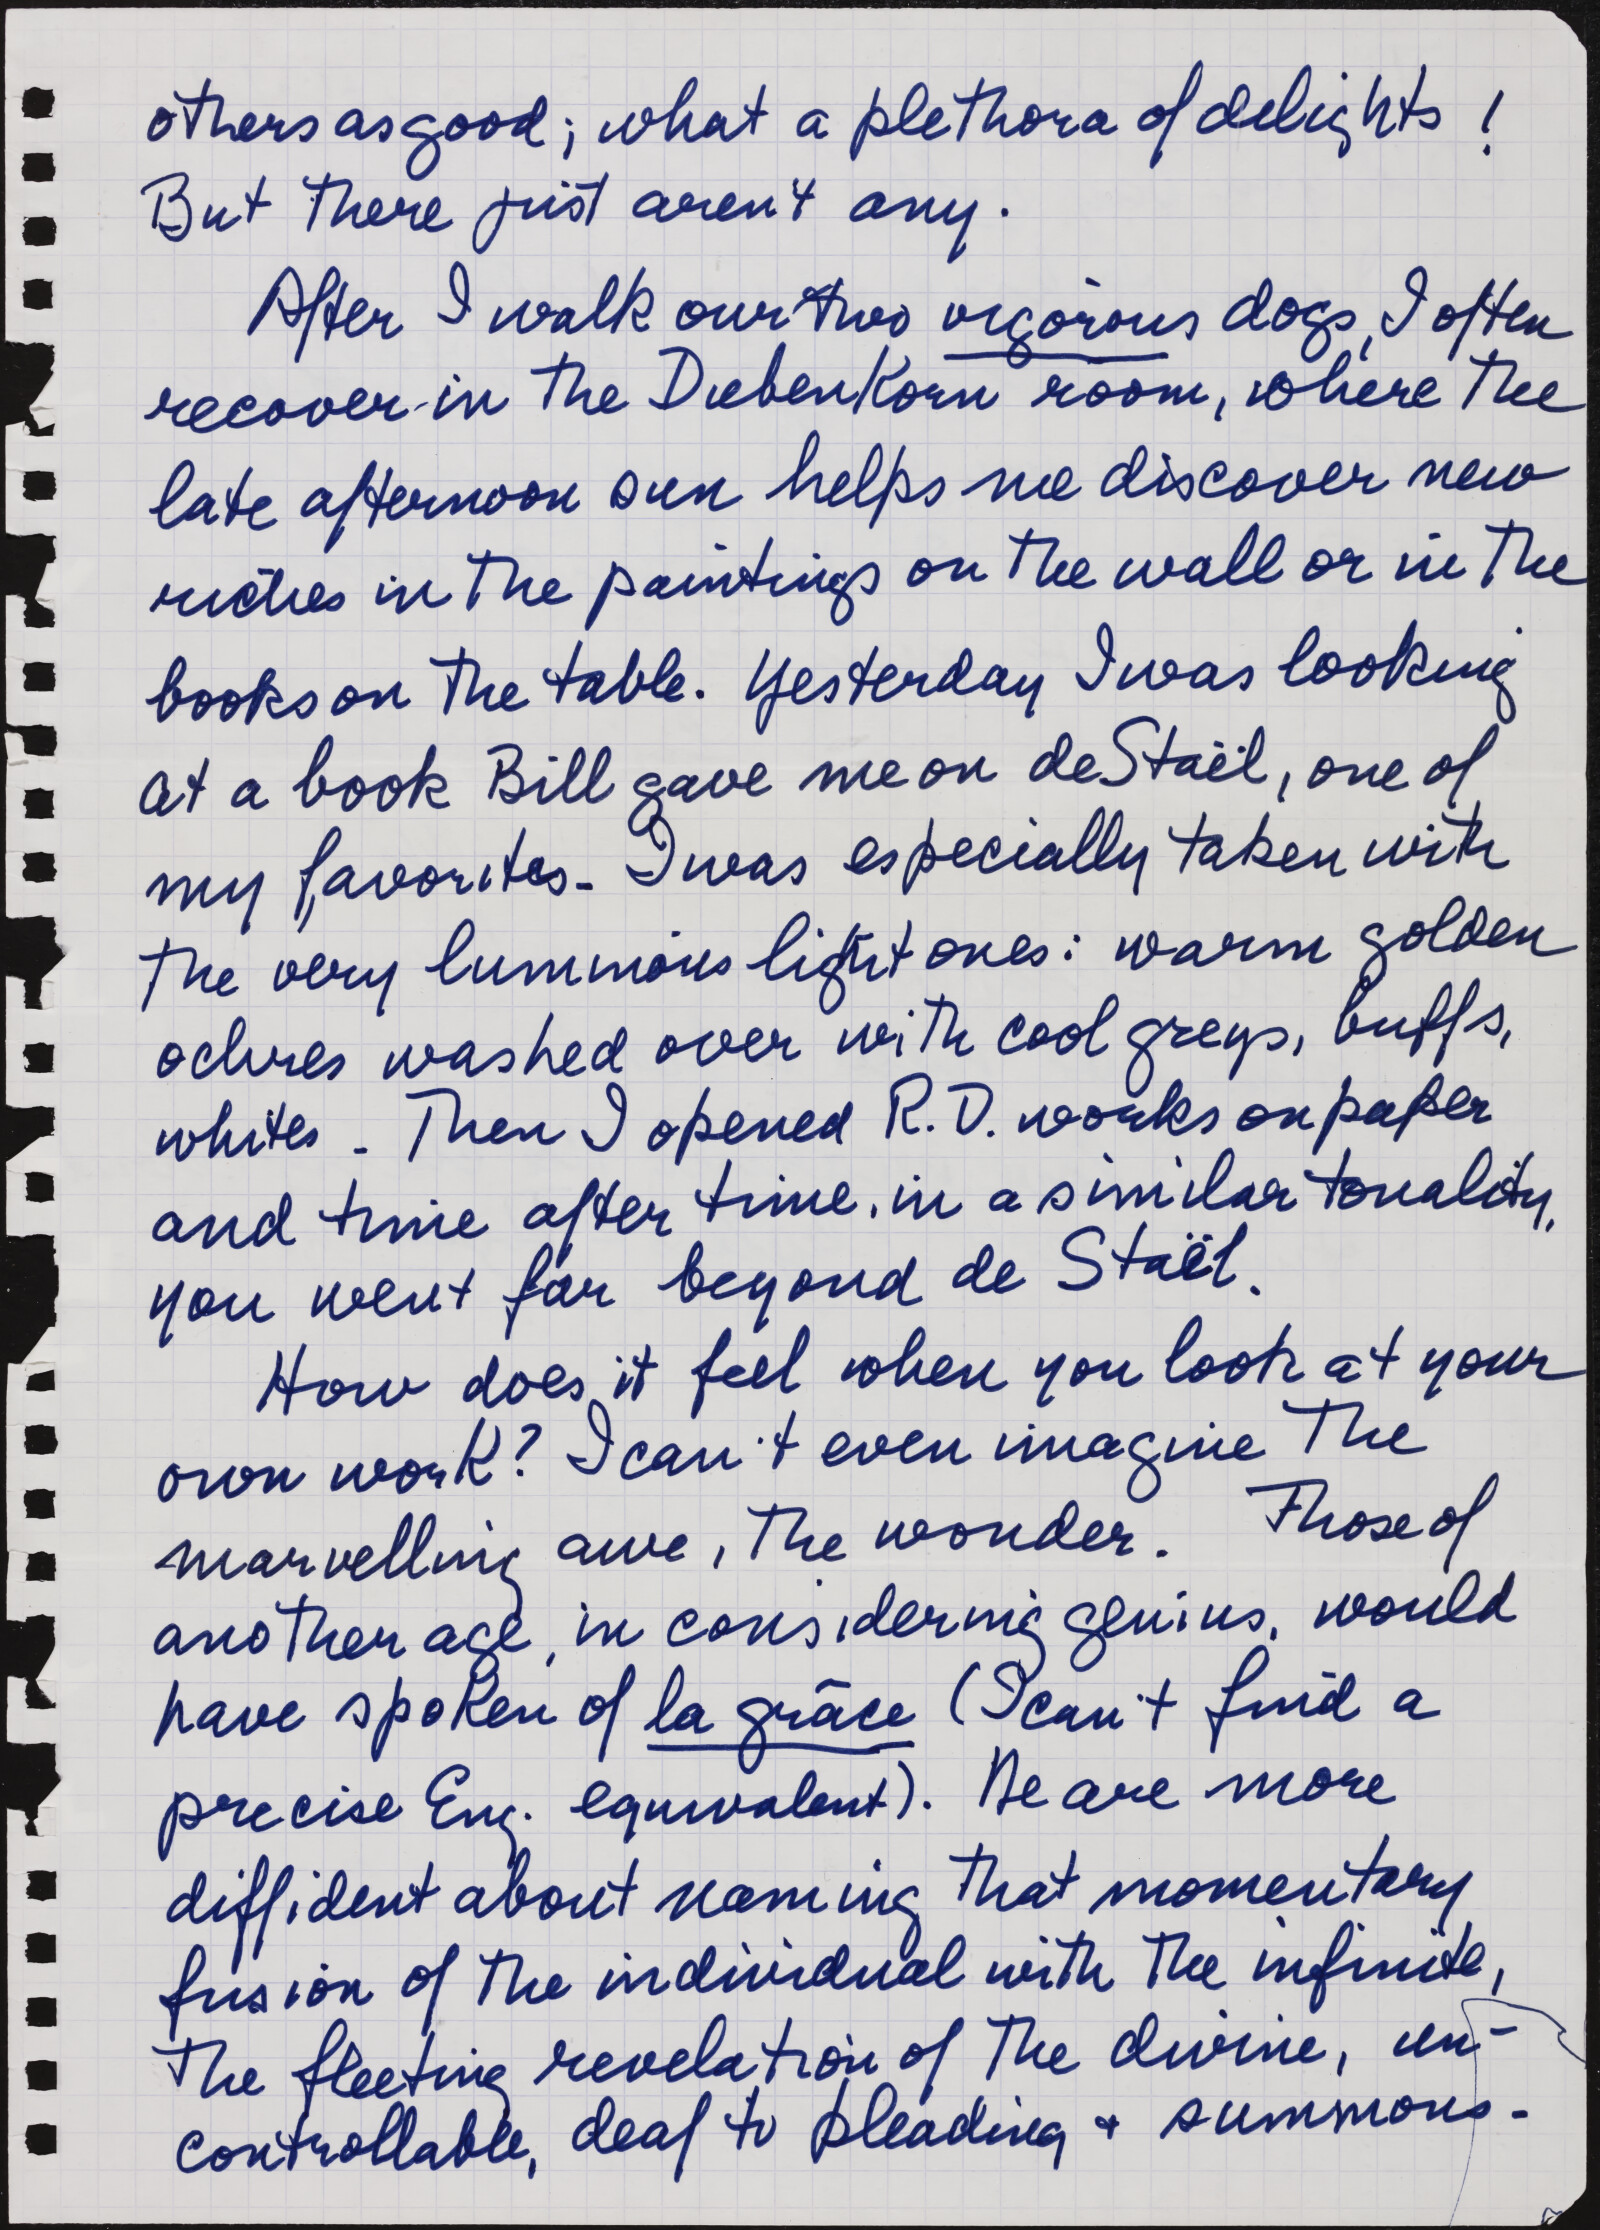 others as good; what a plethora of delights!
But there just aren't any.
After I walk our two vigorous dogs, I often
recover in the Diebenkorn room, where the
late afternoon sun helps me discover new
riches in the paintings on the wall or in the
books on the table. Yesterday I was looking
at a book Bill gave me on de Staël, one of
my favorites. I was especially taken with
the very luminous light ones: warm golden
ochres washed over with cool greys, buffs,
whites. Then I opened R.D. works on paper
and time after time, in a similar tonality,
you went far beyond de Staël.
How does it feel when you look at your
own work? I can't even imagine the
marvelling awe, the wonder. Those of
another age, in considering genius, would
have spoken of la grâce (I can't find a
precise Eng. equivalent). We are more
diffident about naming that momentary
fusion of the individual with the infinite,
the fleeting revelation of the divine, un-
controllable, deaf to pleading + summons.